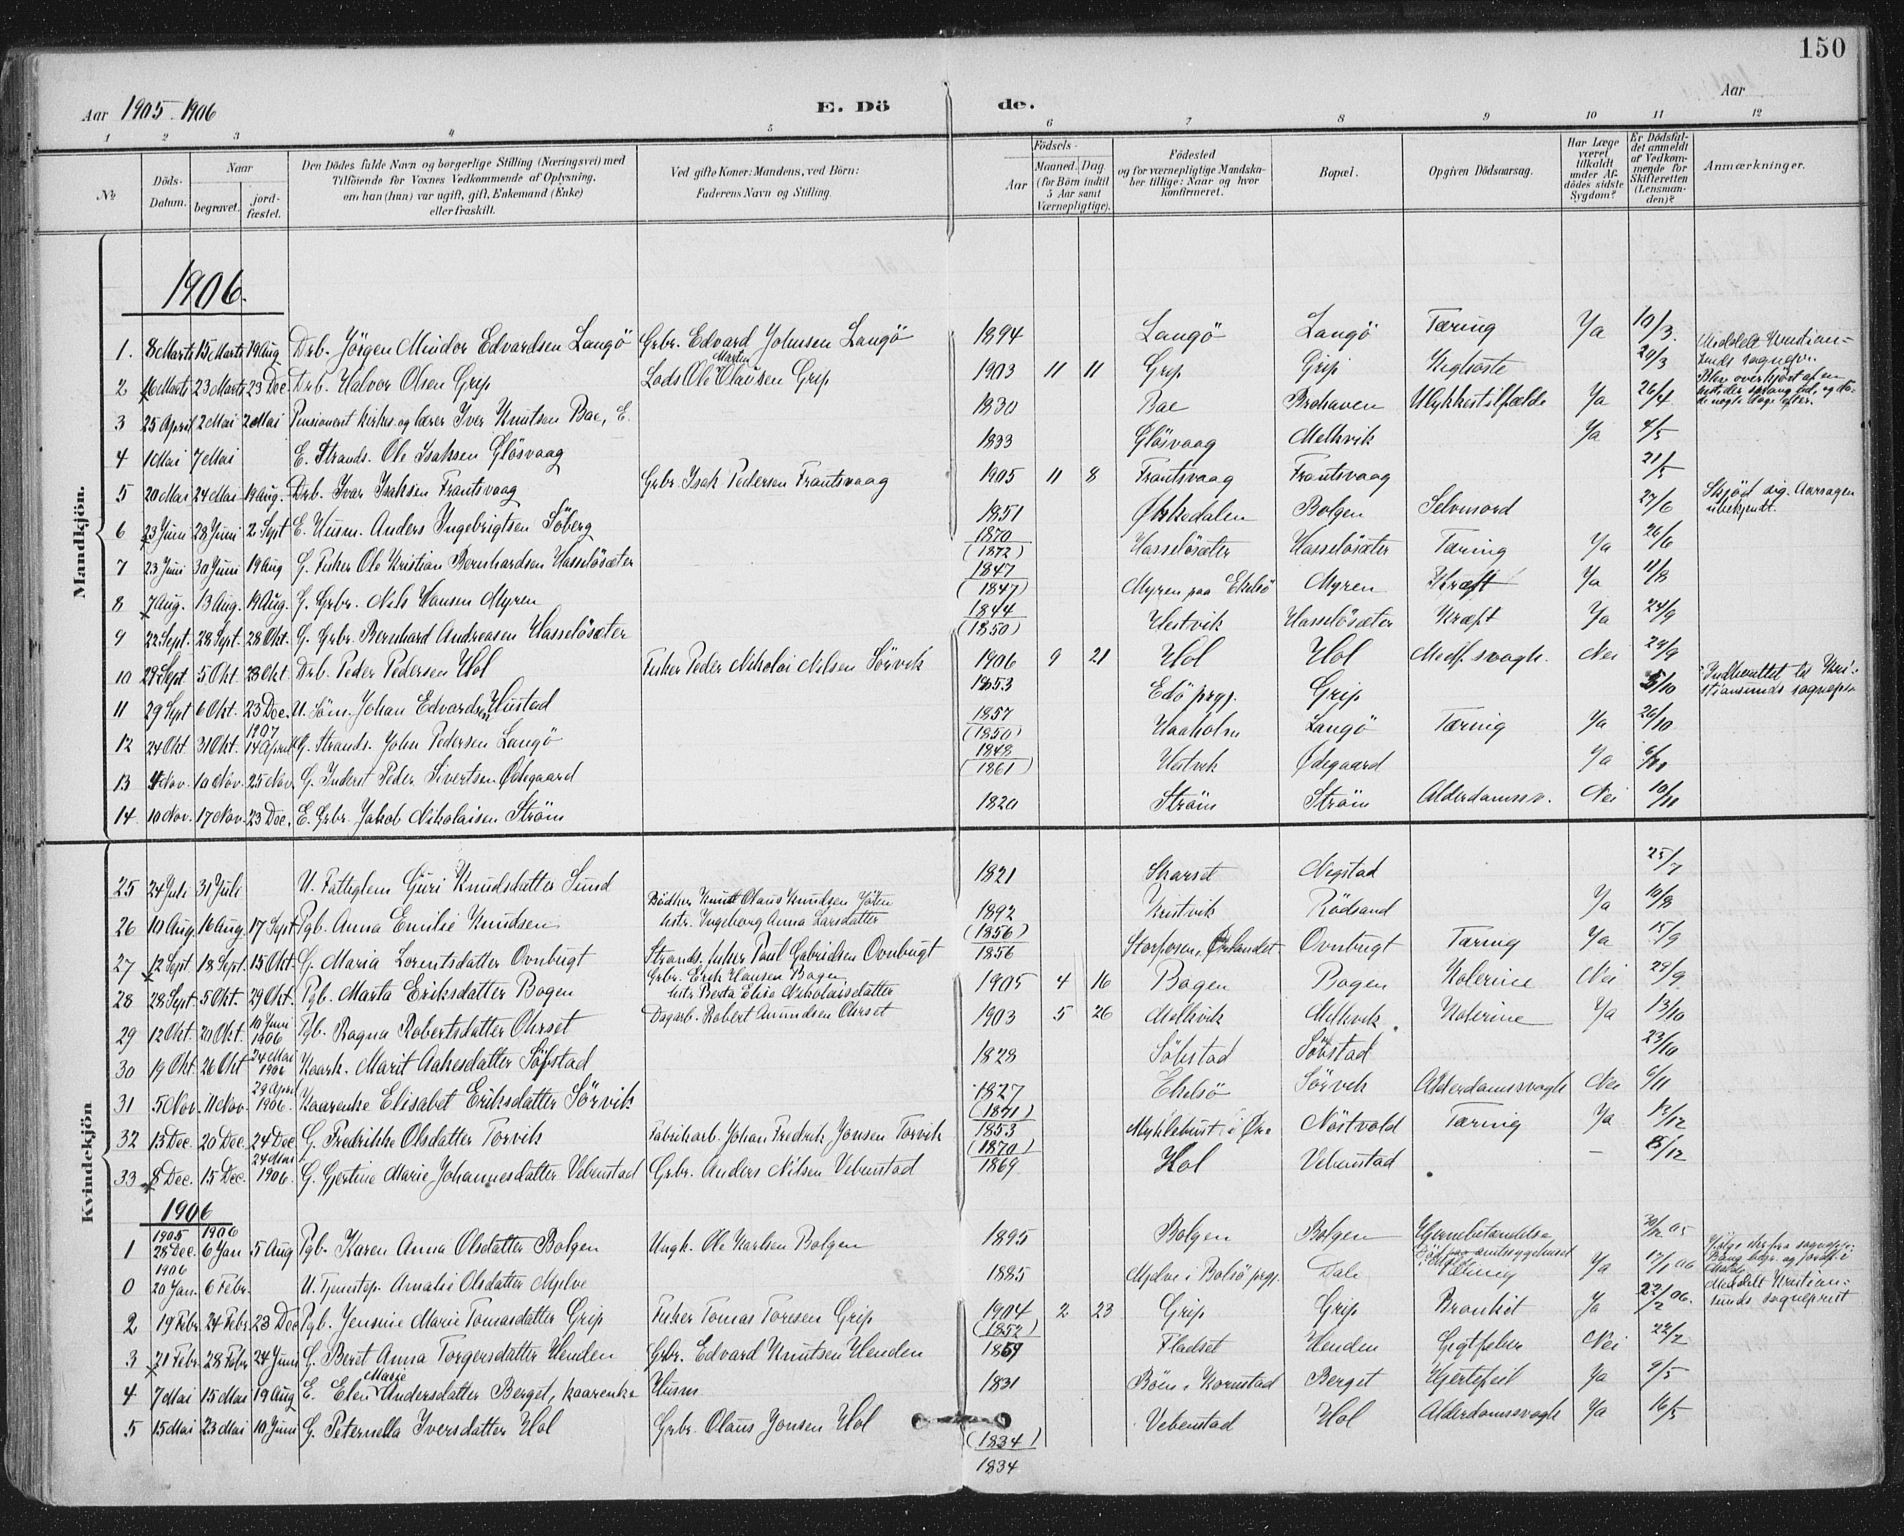 150
Aar 1905-1906 E. Dö de. Aar
1 2 3 4 5 6 7 8 9 10 11 12
№ Döds-Datum. Naar begravet. jord-fæstet. Den Dödes fulde Navn og borgerlige Stilling (Næringsvei) med Tilföiende for Voxnes Vedkommende af Oplysning, om han (hun) var ugift, gift, Enkemand (Enke) eller fraskilt. Ved gifte Koner: Mandens, ved Börn: Faderens Navn og Stilling. Födsels- Aar Maaned. Dag (for Börn indtil 5 Aar samt Værnepligtige). Födested og for værnepligtige Mandska-ber tillige: Naar og hvor konfirmeret. Bopæl. Opgiven Dödsaarsag. Har Læge været tilkaldt under Af-dödes sidste Sygdom? Er Dödsfal-det anmeldt af Vedkom-mende for Skifteretten (Lensman-den)? Anmærkninger.
Mandkjön.
1906.
1. 8 Marts 15 Marts 19 Aug Drb. Jörgen Miodor Edvardsen Langö Grbr. Edvard Johnsen Langö 1894 Langö Langö Tæring Ya 10/3.
2 16 Marts 23 Marts 23 Dec. Drb. Halvor Olsen Grip Lods Ole Morten Olausen Grip 1903 11 11 Grip Grip Kighoste 20/3 Meddelt Kristian-sunds sognepr.
3 25 April 2 Mai 2 Mai Pensioneret kirkes. og lærer Iver Knutsen Bae, E. 1830 Bae Brohaven Ulykkestilfælde Ya 26/4 Blev overkjört af en
4 1 Mai 7 Mai E. Strands. Ole Isaksen Glösvaag 1833 Glösvaag Melkvik Ya 4/5
5 20 Mai 24 Mai 19 Aug. Drb. Ivar Isaksen Frantsvaag Grbr. Isak Pedersen Frantsvaag 1905 11 8 Frantsvaag Frantsvaag 21/5
6 23 Juni 28 Juni 2 Sept E. Husm. Anders Ingebrigtsen Söberg 1851 Økkedalen Bolgen Selvmord 27/6 Skjöd sig. Aarsagen ubekjendt.
7 23 Juni 30 Juni 19 Aug G. Fisker Ole Kristian Bernhardsen Hasselösæter 1870 (1872) Hasselösæter Hasselösæter Tæring Ya 26/6
8 7 Aug. 13 Aug. 19 Aug. G. Grbr. Nels Hansen Myren 1847 (1847) Myren paa Ekelsö Myren Kræft Ya 11/8
9 22 Sept. 28 Sept. 28 Okt. G. Grbr. Bernhard Andreasen Hasselösæter 1844 (1850) Hestvik Hasselösæter Kræft Ya 24/9
10 29 Sept. 5 Okt. 28 Okt. Drb. Peder Pedersen Hol Fisker Peder Nikolai Nilsen Sörvik 1906 9 21 Hol Hol Medf. svagh. Nei 29/9
11 29 Sept 6 Okt. 23 Dec. U. Söm. Johan Edvardsen Hustad 1853 Edö prgj. Grip 5/10 Indhentet til Kri-stiansunds sognepr.
12 24 Okt. 31 Okt. 1907 14 April G. Strands. John Pedersen Langö 1857 (1850) Haaholm Langö Tæring Ya 26/10
13 4 Nov. 10 Nov. 25 Nov. G. Inderst Peder Sivertsen Ødegaard 1848 (1861) Hestvik Ødegaard Ya 6/11
14. 10 Nov. 17 Nov. 23 Dec. E. Grbr. Jakob Nikolaisen Ström 1820 Ström Ström Alderdomssv. Nei 10/11
Kvindekjön
25 24 Juli 31 Juli U. Fattiglem Guri Knudsdatter Sund 1821 Skarset Negstad 25/7
26 10 Aug 16 Aug. 17 Sept Pgb. Anna Emilie Knudsen Bödker Knut Olaus Knudsen hstr. Ingeborg Anna Larsdatter 1892 Kristvik Rödsand Ya 10/8
27 12 Sept 18 Sept. 15 Okt G. Maria Lorentsdatter Ovnbugt Strands. fisker Paul Gabrielsen Ovnbugt (1856) 1856 Storfosen, Ørlandet Ovnbugt Tæring Ya 15/9
28 28 Sept. 5 Okt. 29 Okt. Pgb. Marta Eriksdatter Bogen Grbr. Erik Hansen Bogen hstr. Berta Elise Nikolaisdatter 1905 4 16 Bogen Bogen Kolerine Nei 29/9
29 12 Okt. 20 Okt. 10 Juni 1906 Pgb. Ragna Robertsdatter Ohrset Dagarb. Robert Amundsen Ohrset 1903 5 26 Melkvik Melkvik Kolerine Ya 13/10
30 19 Okt. 26 Okt 24 Mai 1906 Kaark. Marit Aakesdatter Söbstad 1828 Söbstad Söbstad 23/10
31 5 Nov. 11 Nov. 29 April 1906. Kaarenke Elisabet Eriksdatter Sörvik 1827 Ekelsö Sörvik Alderdomssvagh Nei 6/11
32 13 Dec. 20 Dec. 24 Dec G. Fredrikke Olsdatter Torvik Fabrikarb. Johan Fredrik Jonsen Torvik (1871) 1853 Myklebust i Øre Nöstvold Tæring Ya 13/12
33 8 Dec. 15 Dec. 24 Mai 1906. G. Gjertine Marie Johannesdatter Vebenstad Grbr. Anders Nilsen Vebenstad (1870) 1869 Hol Vebenstad — 8/12
1906
1 1905 28 Dec. 1906 6 Jan 5 Aug Pgb. Karen Anna Olsdatter Bolgen Ungk. Ole Karlsen Bolgen 1895 Bolgen Bolgen Hjernebetændelse 30/12 05
0 1906 20 Jan. 6 Febr. U. Tjenstep. Amalie Olsdatter Mjelve 1885 Mjelve i Bolsö prgj. Dale Död paa amtssygehuset i Molde Tæring Ya 17/1 06
2 19 Febr. 24 Febr. 23 Dec Pgb. Jensine Marie Tomasdatter Grip Fisker Tomas Toresen Grip 1904 2 23 Grip Grip Bronkit Ja 22/2 06. Meddelt Kristian-sunds sogneprest
3 21 Febr. 28 Febr 24 Juni G. Beret Anna Torgersdatter Henden Grbr. Edvard Knutsen Henden (1852) 1859 Fladset Henden Gigtfeber Nei 22/2
4 7 Mai 15 Mai 19 Aug E. Elen Marie Andersdatter Berget, kaarenke Husm. 1831 Böen, Kornstad Berget Hjertefeil Ya 9/5
5 15 Mai 23 Mai 10 Juni G. Peternella Iversdatter Hol Grbr. Olaus Jonsen Hol (1834) 1834 Vebenstad Hol Alderdomssvagh Ya 16/5